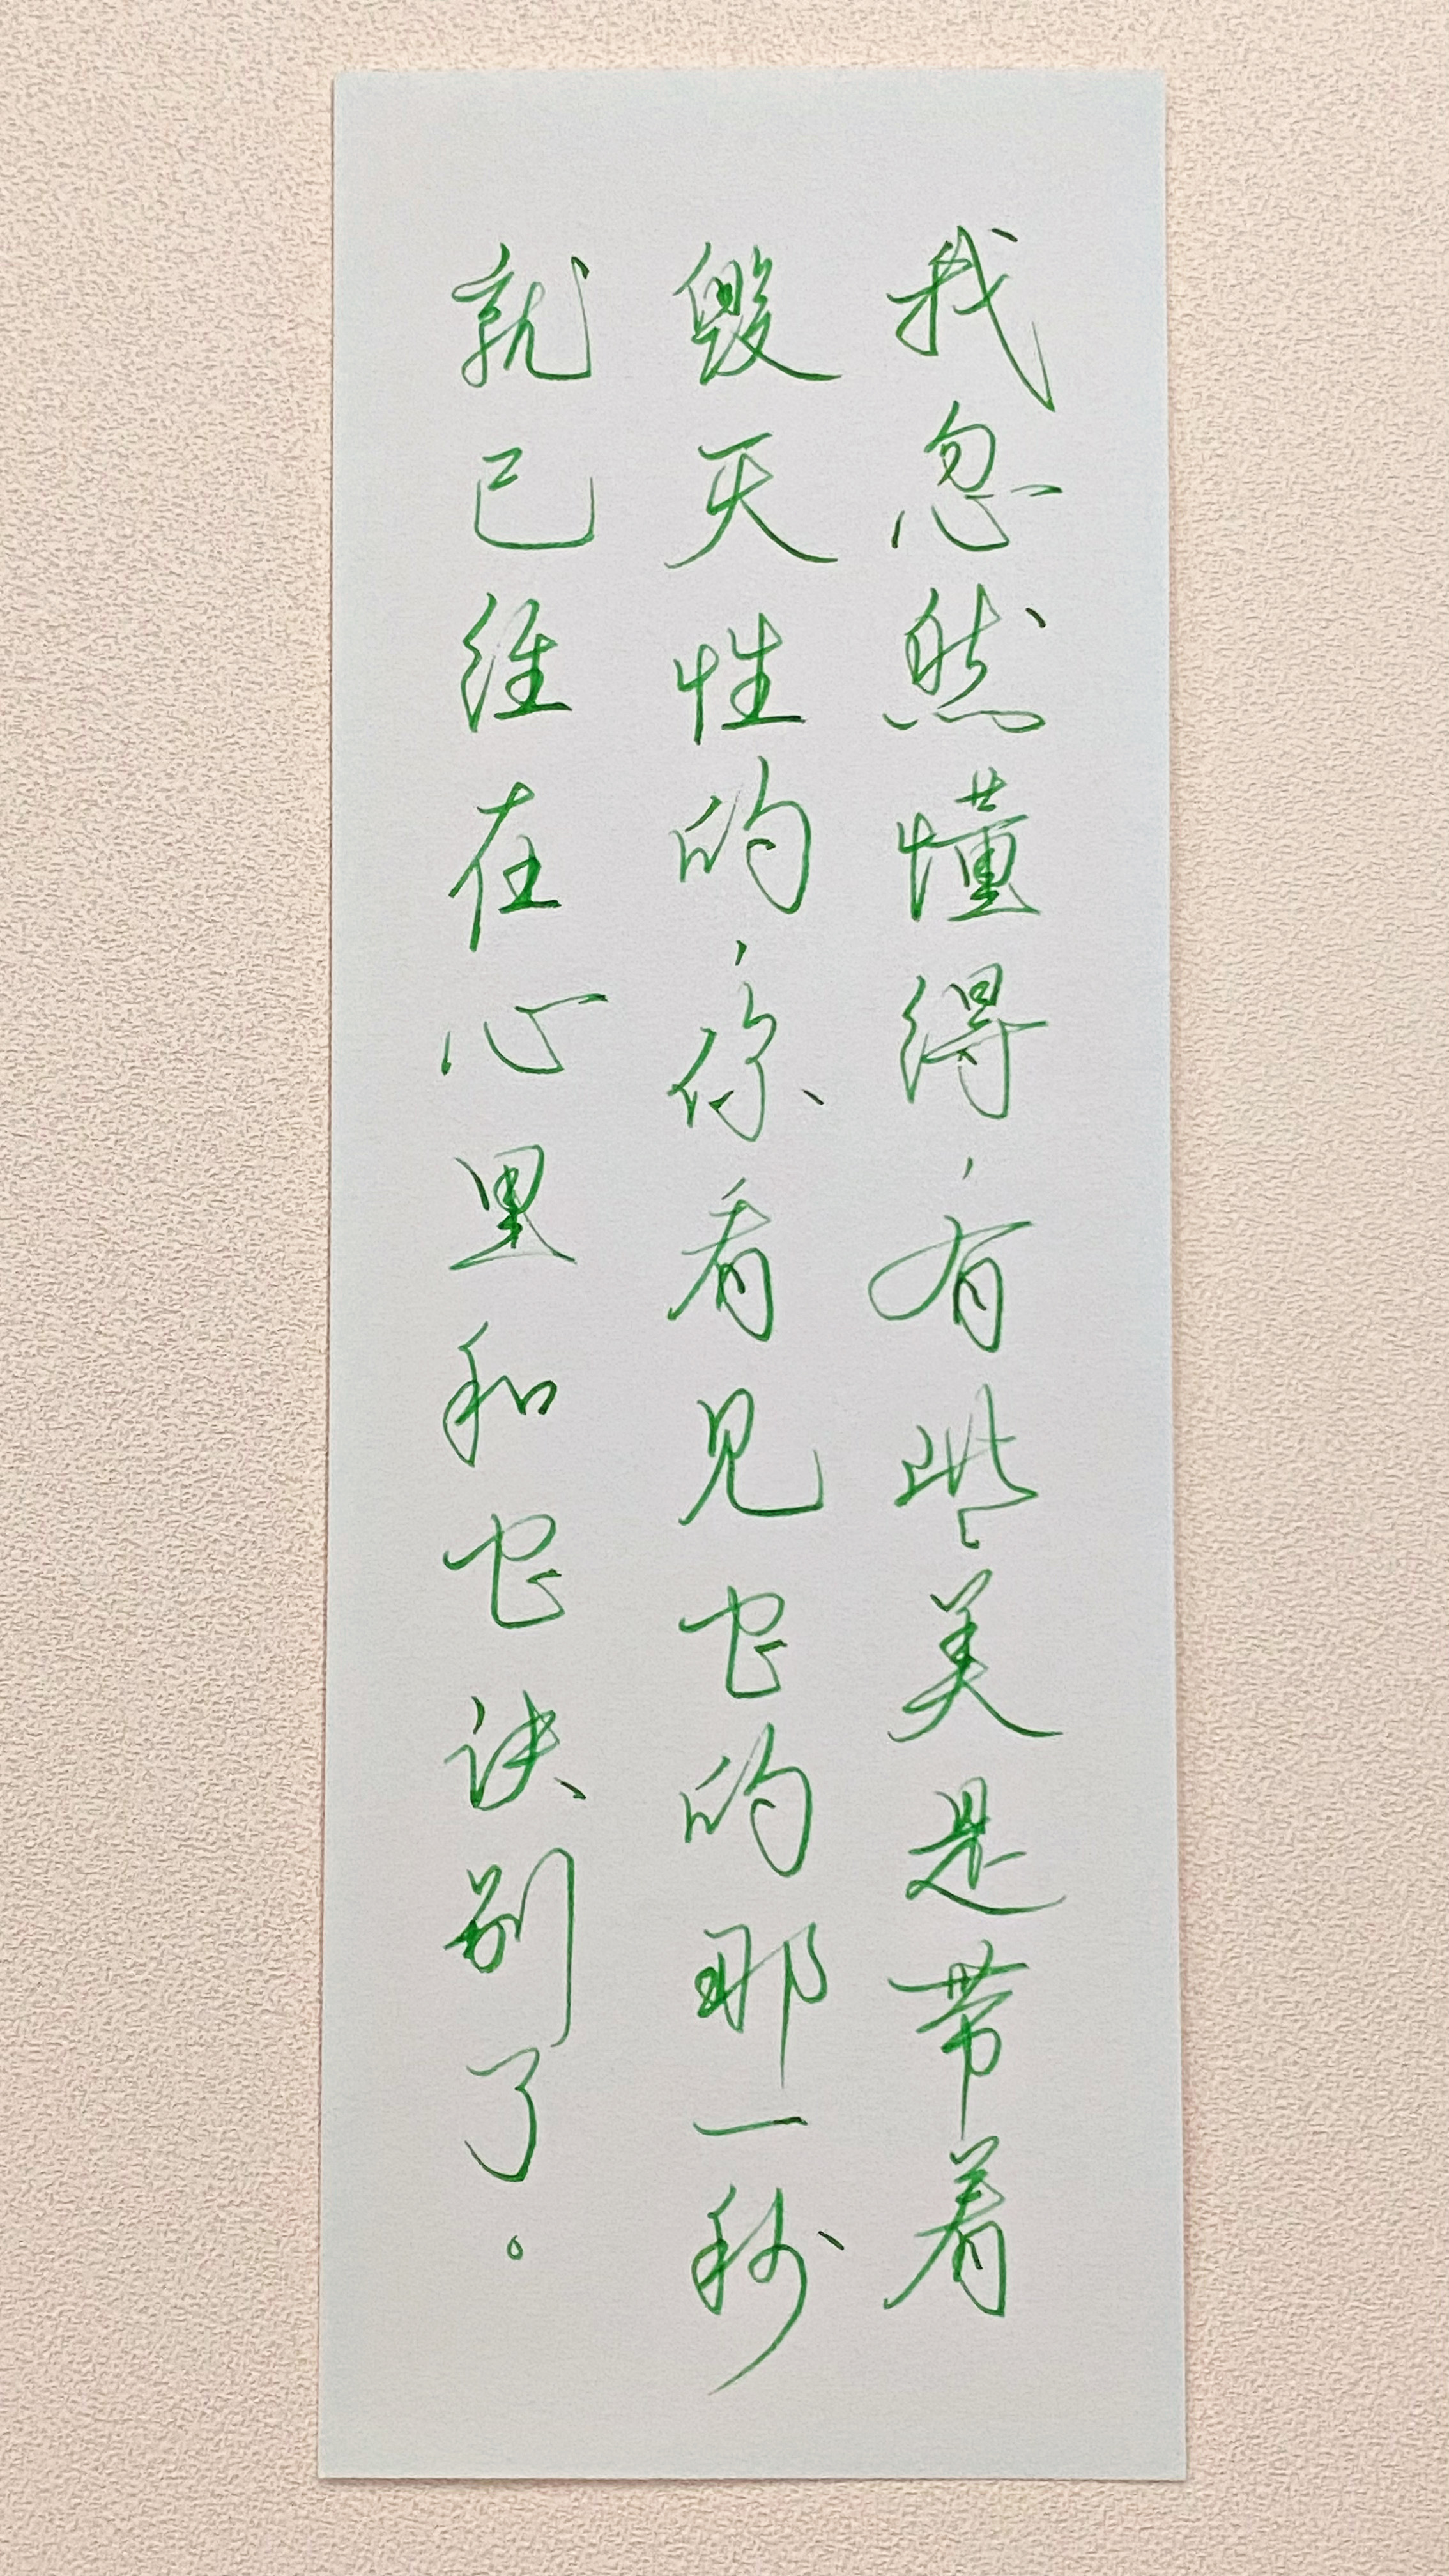 我忽然懂得，有些美是带着
毁灭性的，你看见它的那一秒
就已经在心里和它诀别了。